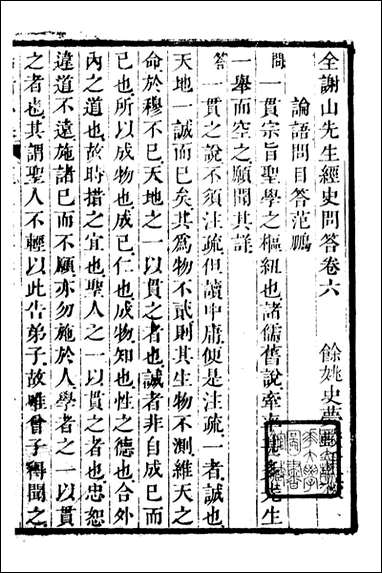 全謝山先生經史問答卷六
餘姚史夢
論語問目答范鵬
問一貫宗旨聖學之樞紐也諸儒舊說牽 先生
一舉而空之願聞其詳
答一貫之說不須注疏但讀中庸便是注疏一者誠也
天地一誠而已矣其爲物不貳則其生物不測維天之
命於穆不已天地之一以貫之者也誠者非自成已而
已也所以成物也成已仁也成物知也性之德也合外
內之道也故時措之宜也聖人之一以貫之者也忠恕
違道不遠施諸已而不願亦勿施於人學者之一以貫
之者也其謂聖人不輕以此告弟子故唯曾子得聞之